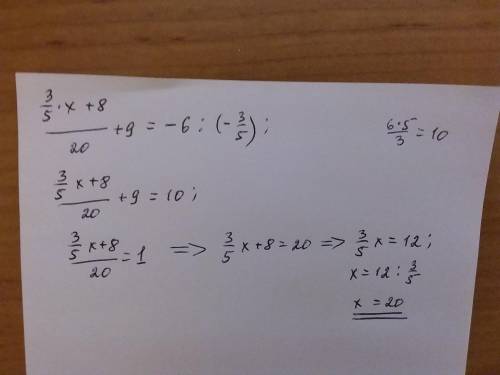 (3/5 · x + 8)/20 + 9 = -6 : (-3/5);
(6·5)/3 = 10
(3/5 x + 8)/20 + 9 = 10;
(3/5 x + 8)/20 = 1 => 3/5 x + 8 = 20 => 3/5 x = 12;
x = 12 : 3/5
x = 20